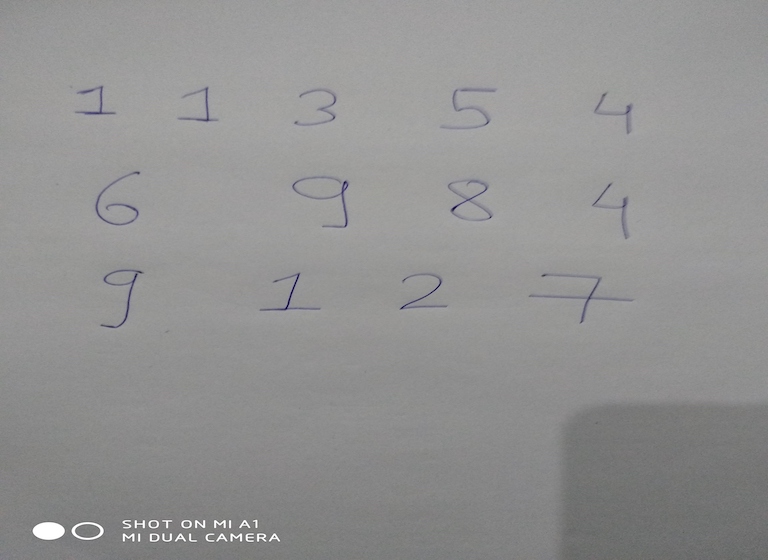 1 1 3 5 4
6 9 8 4
9 1 2 7
SHOT ON MI A1
MI DUAL CAMERA